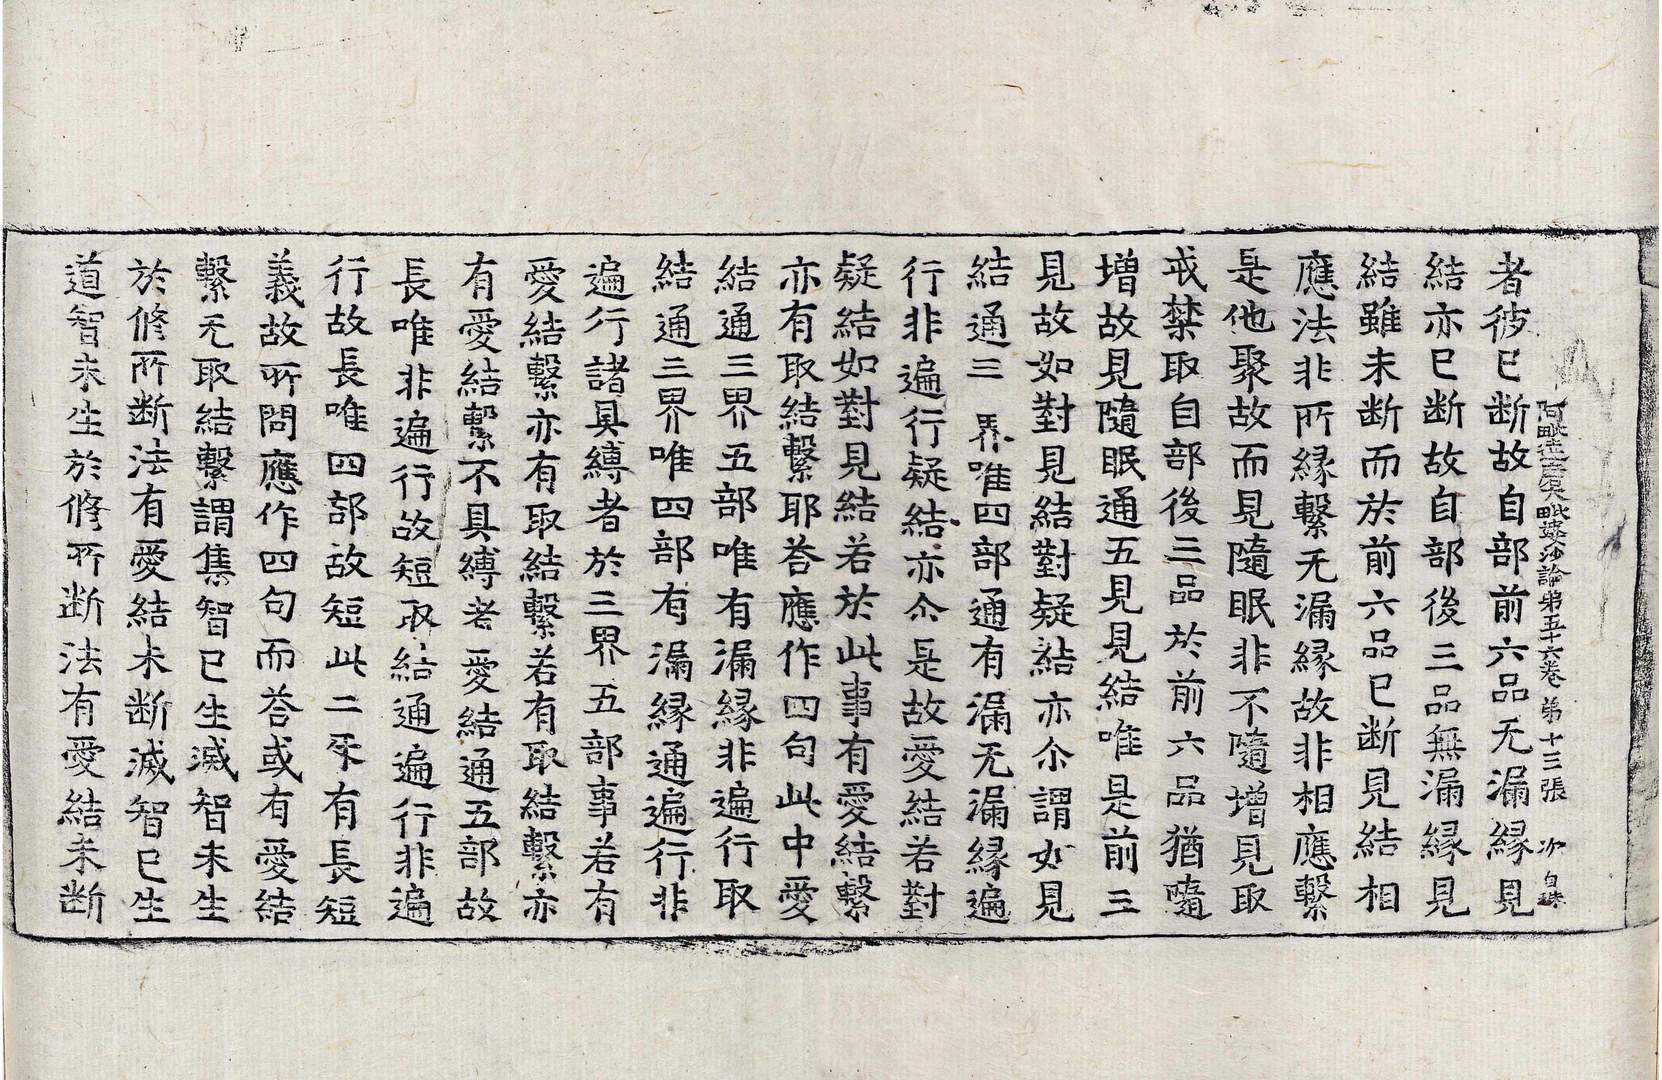 阿毗達磨大毗婆沙論第五十六卷 第十三張 次
者彼已断故自部前六品无漏縁見
結亦已断故自部後三品無漏縁見
結雖未断而於前六品已断見結相
應法非所縁繫无漏縁故非相應繫
是他聚故而見隨眠非不隨增見取
戒禁取自部後三品於前六品猶隨
增故見隨眠通五見見結唯是前三
見故如對見結對疑結亦尒謂如見
結通三界唯四部通有漏无漏縁遍
行非遍行疑結亦尒是故愛結若對
疑結如對見結若於此事有愛結繫
亦有取結繫耶荅應作四句此中愛
結通三界五部唯有漏縁非遍行取
結通三界唯四部有漏縁通遍行非
遍行諸具縛者於三界五部事若有
愛結繫亦有取結繫若有取結繫亦
有愛結繫不具縛者愛結通五部故
長唯非遍行故短取結通遍行非遍
行故長唯四部故短此二乎有長短
義故所問應作四句而荅或有愛結
繫无取結繫謂集智已生滅智未生
於脩所断法有愛結未断滅智已生
道智未生於脩所断法有愛結未断